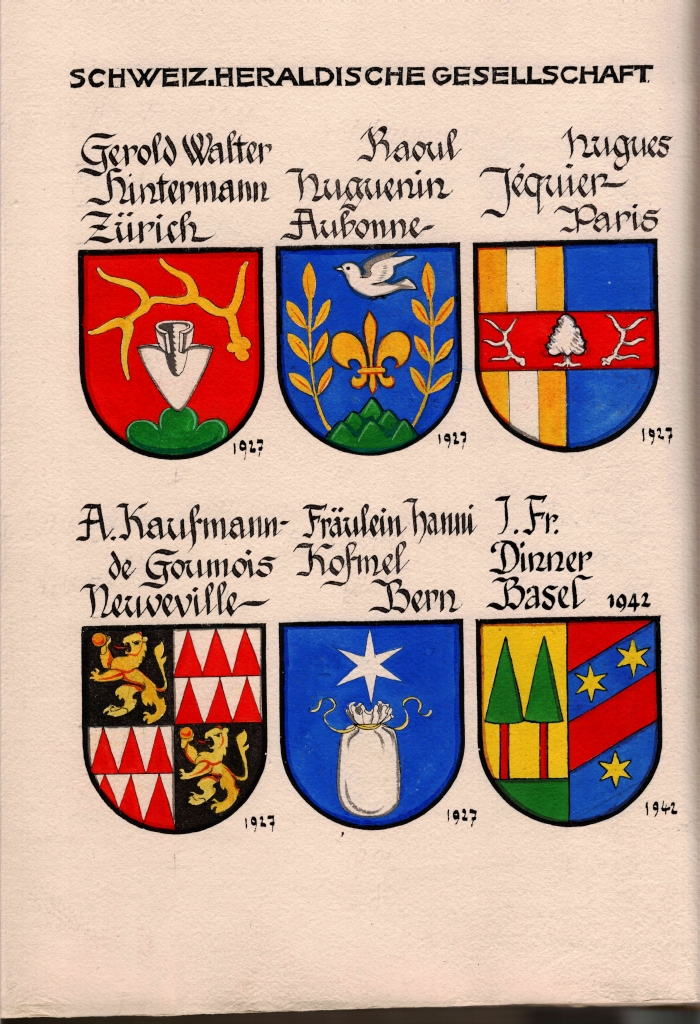 SCHWEIZ.HERALDISCHE GESELLSCHAFT
Gerold Walter
Hintermann
Zürich
1927
Raoul
Huguenin
Aubonne-
1927
Hugues
Jéquier-
Paris
1927
A. Kaufmann-
de Goumois
Neuveville-
1927
Fräulein Hanni
Kofmel
Bern
1927
J. Fr.
Dinner
Basel 1942
1942